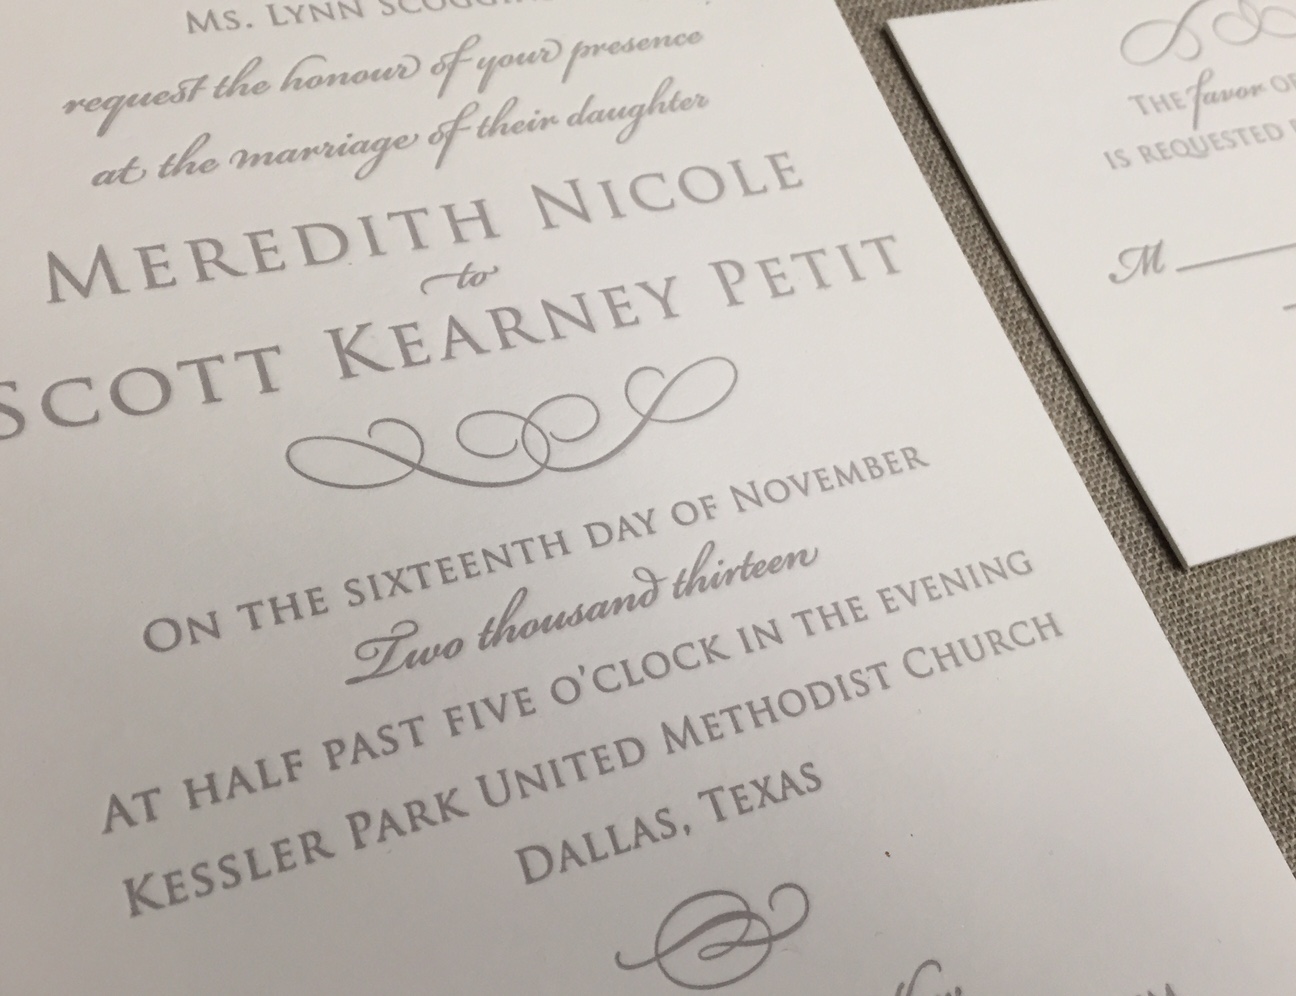 Ms. Lynn
request the honour of your presence
at the marriage of their daughter
Meredith Nicole
to
Scott Kearney Petit
On the sixteenth day of November
Two thousand thirteen
At half past five o'clock in the evening
Kessler Park United Methodist Church
Dallas, Texas
The favor of
is requested
M